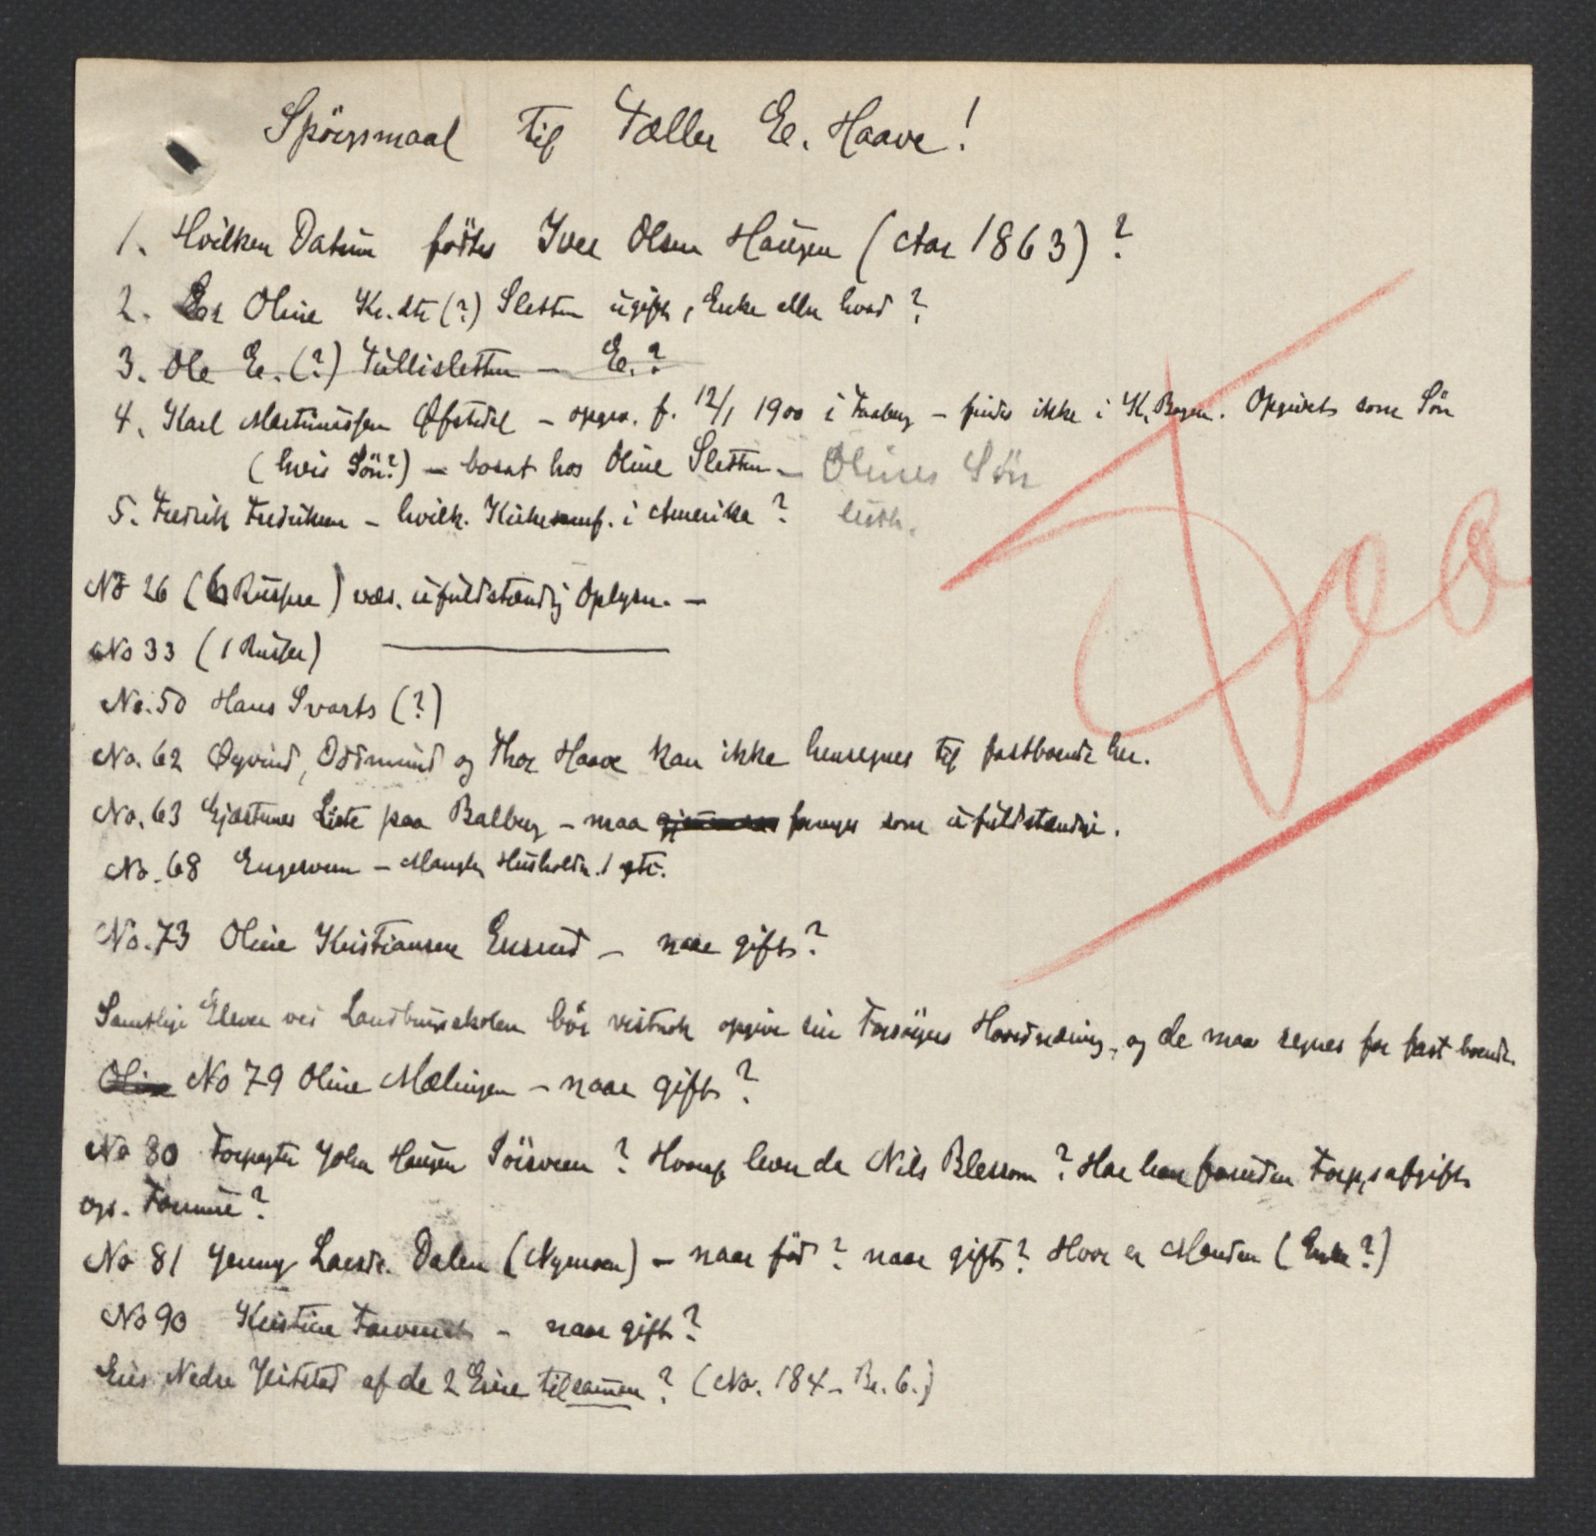 Spörgsmaal til Tæller E. Haave!
1. Hvilken Datum födtes Iver Olsen Haugen (Aar 1863)?
2. Er Oline Kr.dtr (?) Sletten ugift, Enke eller hvad?
3. Ole E. (?) Tullisletten - E.?
4. Karl Martinussen Øfstedal - opgis. f. 12/1 1900 i Faaberg - findes ikke i K. Bogen. Opgivet som Sön
(hvis Sön?) - bosat hos Oline Sletten - Olines Sön
5. Fredrik Fredriksen - hvilk. Kirkesamf. i Amerika? luth.
No 26 (6 Russere) væs. ufuldstændig Oplysn. -
No 33 (1 Russer) ———
No. 50 Hans Svarts (?)
No. 62 Øyvind, Oddmund og Thor Haave kan ikke henregnes til fastboende her.
No. 63 Gjæstenes Liste paa Balberg - maa fanges som ufuldstændige.
No. 68 Engesveen - Mangler Husholdn. 1 etc.
No. 73 Oline Kristiansen Ensrud - naar gift?
Samtlige Elever ved Landbrugsskolen bör vistnok opgive sin Forsörgers Hovednæring, og de maa regnes for fastboende.
No 79 Oline Mælingen - naar gift?
No 80 Forpagter Johan Haugen Sörsveen? Hvoraf lever da Nils Blessom? Har han foruden Forp.s afgift
ogs. Formue?
No 81 Jenny Laursdr. Dalen (Nymoen) - naar föd? naar gift? Hvor er Manden (Enke?)
No 90 Kristine - naar gift?
Eies Nedre Jördstad af de 2 Eiere tilsammen? (No. 184 - Br. 6.)